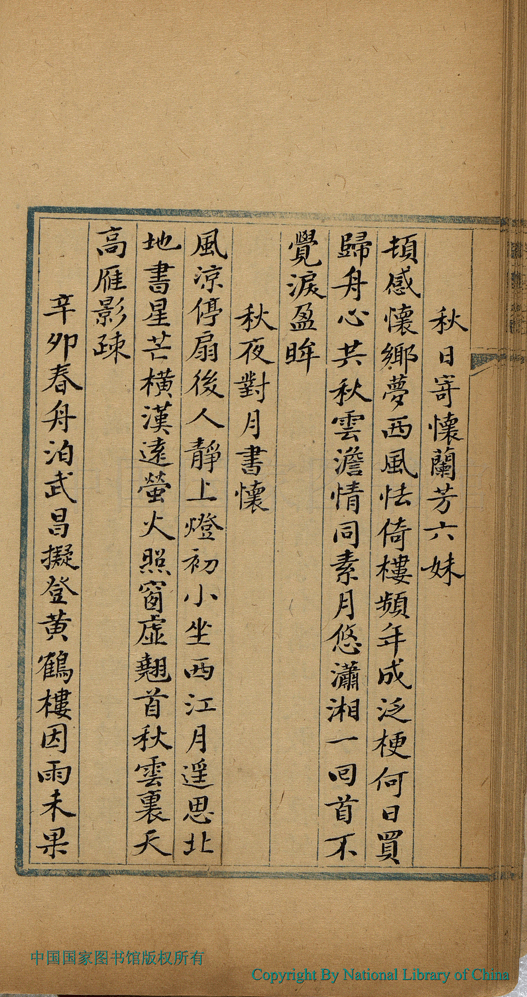 秋日寄懷蘭芳六妹
頓感懷鄉夢西風怯倚樓頻年成泛梗何日買
歸舟心共秋雲澹情同素月悠瀟湘一回首不
覺淚盈眸
秋夜對月書懷
風涼停扇後人靜上燈初小坐西江月遥思北
地書星芒橫漢遠螢火照窗虛翹首秋雲裏天
高雁影疎
辛卯春舟泊武昌擬登黃鶴樓因雨未果
中国国家图书馆版权所有
Copyright By National Library of China